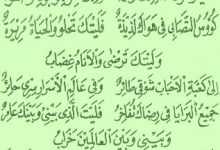 كُؤُوسُ التَّصَابِي فِي هَوَاكَ لَذِيذَةٌ فَلَيْتَكَ تَحْلُو وَالْحَيَاةُ مَرِيرَةٌ
وَلَيْتَكَ تَرْضَى وَالْأَنَامُ غِضَابُ
إِلَى كَعْبَةِ الْأَحْبَابِ شَوْقِي طَائِرٌ وَفِي عَالَمِ الْأَسْرَارِ سِرِّي حَائِرٌ
جَمِيعُ الْبَرَايَا فِي رِضَاكَ تُفَاخِرُ فَلَيْتَ الَّذِي بَيْنِي وَبَيْنَكَ عَامِرٌ
وَبَيْنِي وَبَيْنَ الْعَالَمِينَ خَرَابُ